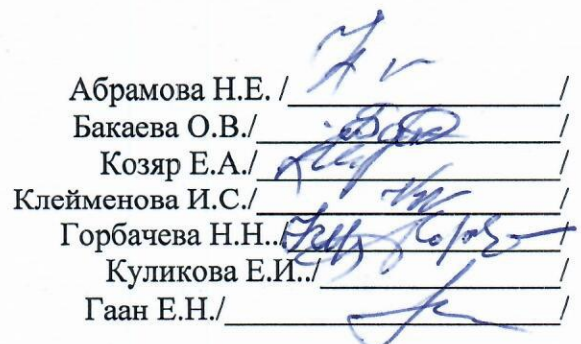 Абрамова Н.Е. /____________________/
Бакаева О.В./____________________/
Козяр Е.А./____________________/
Клейменова И.С./____________________/
Горбачева Н.Н../____________________/
Куликова Е.И../____________________/
Гаан Е.Н./____________________/